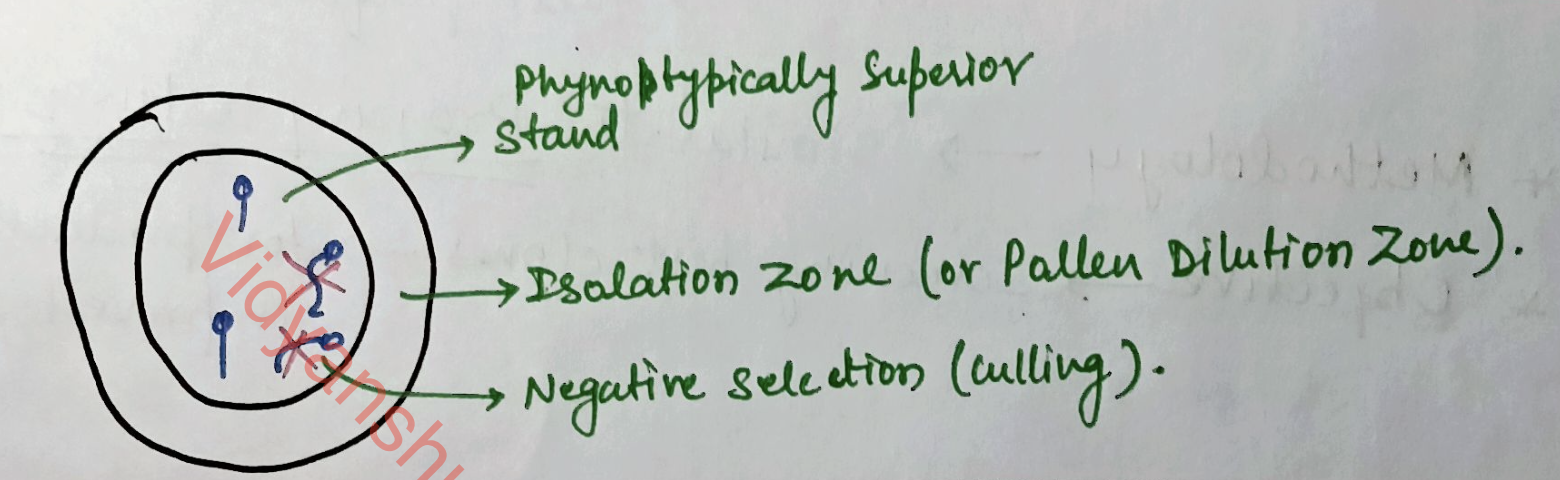 Phynotypically Superior
Stand
Isolation Zone (or Pallen Dilution Zone).
Negative Selection (Culling).
Vidyanshu